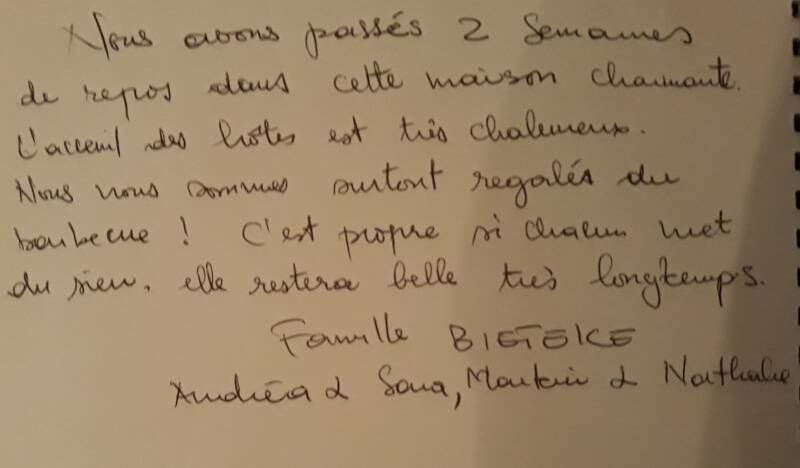 Nous avons passés 2 semaines
de repos dans cette maison charmante.
L'acceuil des hôtes est très chaleureux.
Nous nous sommes surtout regalés du
barbecue ! C'est propre si chacun met
du sien, elle restera belle très longtemps.
Famille BIETEKE
Andréa & Sara, & Nathalie